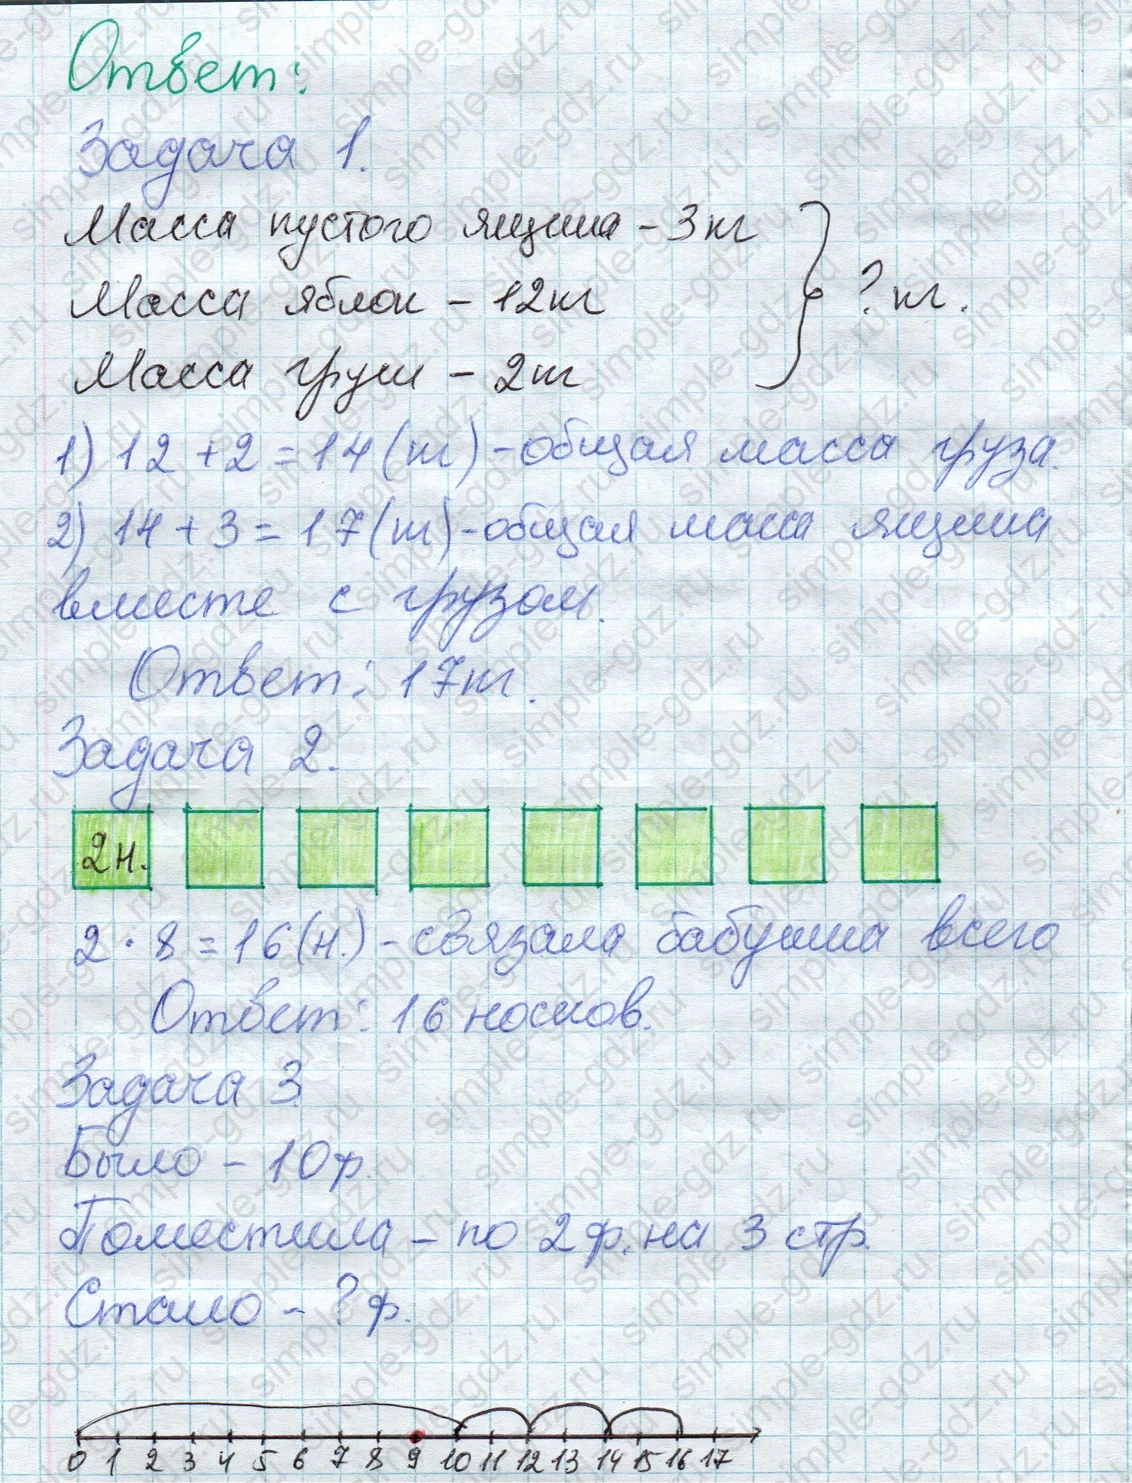 Ответ:
Задача 1.
Масса пустого ящика – 3 кг
Масса яблок – 12 кг
? кг.
Масса груш – 2 кг
1) 12 + 2 = 14 (кг) – общая масса груза.
2) 14 + 3 = 17 (кг) – общая масса ящика
вместе с грузом.
Ответ: 17 кг.
Задача 2.
2 н.
2 · 8 = 16 (н.) – связала бабушка всего
Ответ: 16 носков.
Задача 3
Было – 10 ф.
Поместила – по 2 ф. на 3 стр.
Стало – ? ф.
0 1 2 3 4 5 6 7 8 9 10 11 12 13 14 15 16 17
simple-gdz.ru